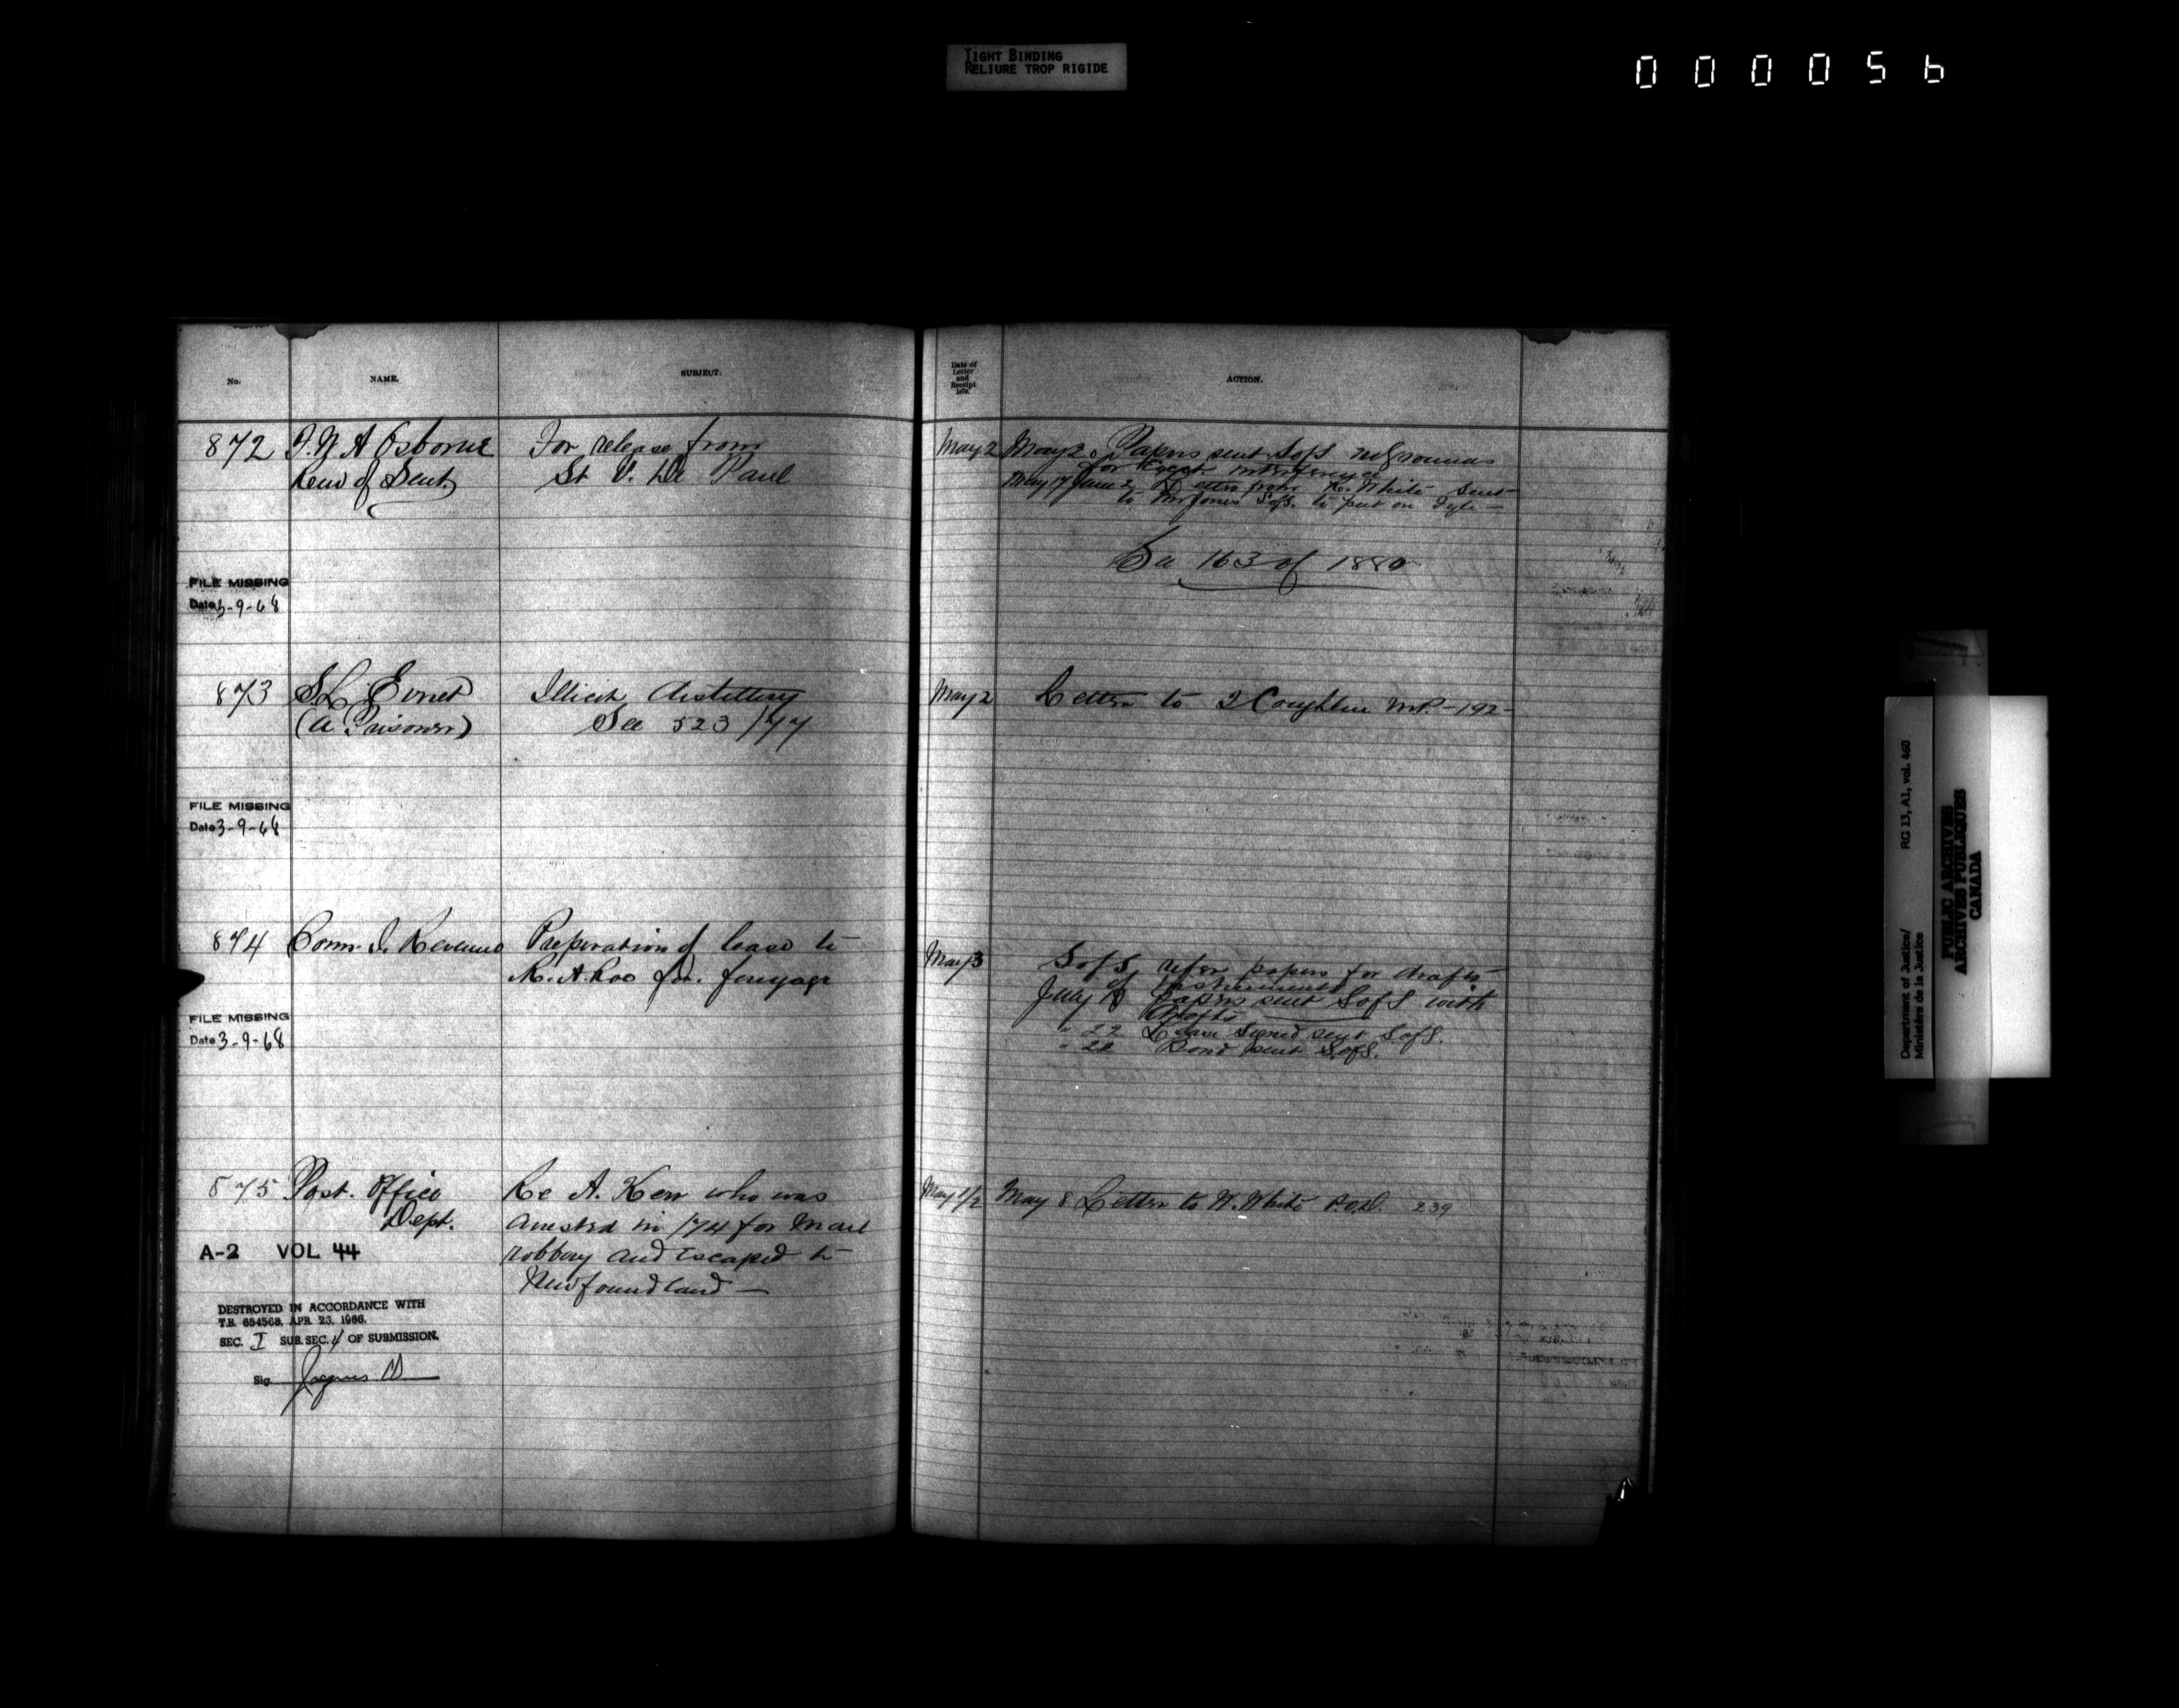 TIGHT BINDING
RELIURE TROP RIGIDE
000056
No.
NAME.
SUBJECT.
Date of
Letter
and
Receipt
187
ACTION.
872 A Osborne For release from May 2 May 2 Papers sent SofS no grounds
of Sent. St V. de Paul for interference
May 17 June 2 Letter from White sent
to Mr Jones SofS. to put on Fyle —
See 163 of 1880
FILE MISSING
Date 3-9-68
873 May 2 Letter to Coughlin M.P. - 192 -
(A Prisoner) Illicit distillery
See 523/77
FILE MISSING
Date 3-9-68
874 Com. I. Revenue Preparation of lease to May 3 SofS. refer papers for draft
R. A. for of instrument
July Papers sent SofS with
drafts
" 22 Lease signed sent SofS.
" 22 Bond sent SofS.
FILE MISSING
Date 3-9-68
875 Post. Office Re A. Kerr who was May 1/2 May 8 Letter to W. White P.O.D. 239
Dept. arrested in /74 for mail
robbery and escaped to
Newfoundland —
A-2 VOL 44
DESTROYED IN ACCORDANCE WITH
T.B. 654568, APR. 23, 1966.
SEC. I SUB. SEC. 4 OF SUBMISSION.
Sig.
Department of Justice/
Ministère de la Justice
RG 13, A1, vol. 460
PUBLIC ARCHIVES
ARCHIVES PUBLIQUES
CANADA